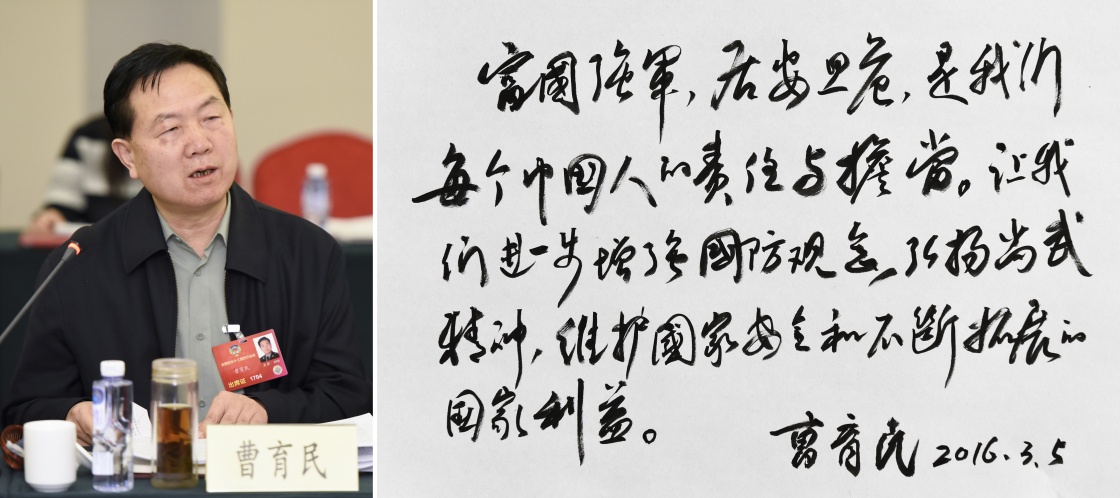 曹育民
出席证 1704
曹育民
富國强軍，居安思危，是我们
每个中国人的责任与擔當。让我
们进一步增强國防观念，弘扬尚武
精神，维护國家安全和不断拓展的
国家利益。
曹育民 2016.3.5